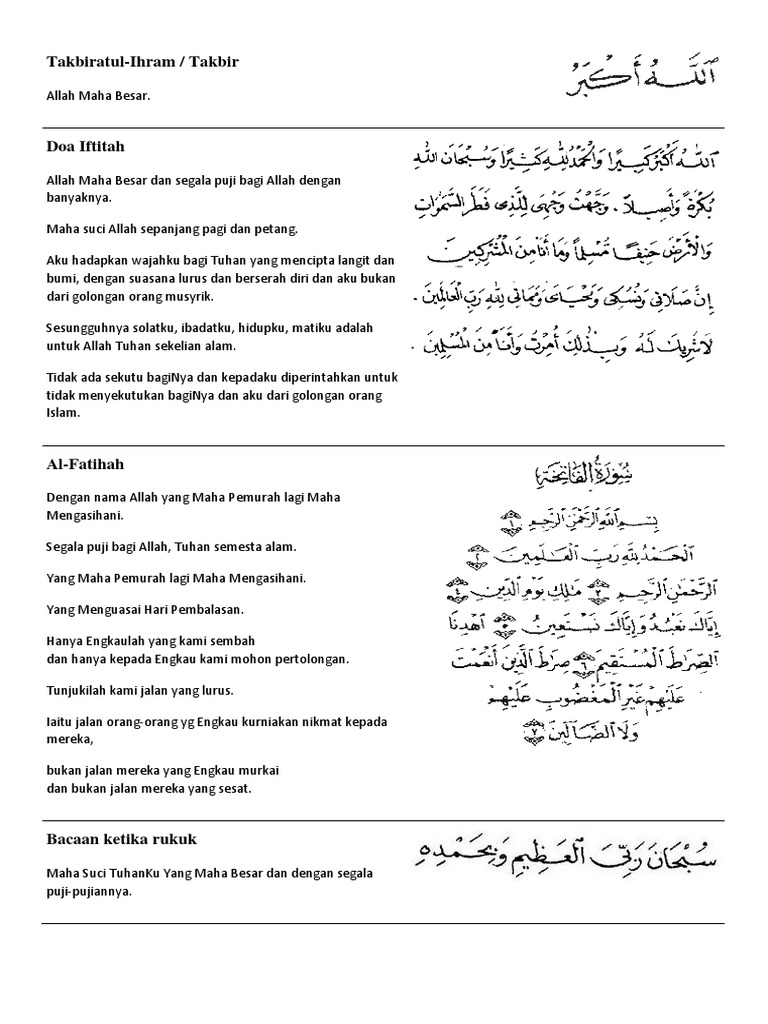 Takbiratul-Ihram / Takbir
اللَّهُ أَكْبَرُ
Allah Maha Besar.
Doa Iftitah
Allah Maha Besar dan segala puji bagi Allah dengan
banyaknya.
Maha suci Allah sepanjang pagi dan petang.
Aku hadapkan wajahku bagi Tuhan yang mencipta langit dan
bumi, dengan suasana lurus dan berserah diri dan aku bukan
dari golongan orang musyrik.
Sesungguhnya solatku, ibadatku, hidupku, matiku adalah
untuk Allah Tuhan sekelian alam.
Tidak ada sekutu bagiNya dan kepadaku diperintahkan untuk
tidak menyekutukan bagiNya dan aku dari golongan orang
Islam.
اللَّهُ أَكْبَرُ كَبِيرًا وَالْحَمْدُ لِلَّهِ كَثِيرًا وَسُبْحَانَ اللَّهِ
بُكْرَةً وَأَصِيلاً . وَجَّهْتُ وَجْهِيَ لِلَّذِي فَطَرَ السَّمَوَاتِ
وَالْأَرْضَ حَنِيفًا مُسْلِمًا وَمَا أَنَا مِنَ الْمُشْرِكِينَ
إِنَّ صَلَاتِي وَنُسُكِي وَمَحْيَايَ وَمَمَاتِي لِلَّهِ رَبِّ الْعَالَمِينَ .
لَا شَرِيكَ لَهُ وَبِذَلِكَ أُمِرْتُ وَأَنَا مِنَ الْمُسْلِمِينَ .
Al-Fatihah
Dengan nama Allah yang Maha Pemurah lagi Maha
Mengasihani.
Segala puji bagi Allah, Tuhan semesta alam.
Yang Maha Pemurah lagi Maha Mengasihani.
Yang Menguasai Hari Pembalasan.
Hanya Engkaulah yang kami sembah
dan hanya kepada Engkau kami mohon pertolongan.
Tunjukilah kami jalan yang lurus.
Iaitu jalan orang-orang yg Engkau kurniakan nikmat kepada
mereka,
bukan jalan mereka yang Engkau murkai
dan bukan jalan mereka yang sesat.
سُورَةُ الْفَاتِحَةِ
بِسْمِ اللَّهِ الرَّحْمَٰنِ الرَّحِيمِ ١
الْحَمْدُ لِلَّهِ رَبِّ الْعَالَمِينَ ٢
الرَّحْمَٰنِ الرَّحِيمِ ٣ مَالِكِ يَوْمِ الدِّينِ ٤
إِيَّاكَ نَعْبُدُ وَإِيَّاكَ نَسْتَعِينُ ٥ اهْدِنَا
الصِّرَاطَ الْمُسْتَقِيمَ ٦ صِرَاطَ الَّذِينَ أَنْعَمْتَ
عَلَيْهِمْ غَيْرِ الْمَغْضُوبِ عَلَيْهِمْ
وَلَا الضَّالِّينَ ٧
Bacaan ketika rukuk
Maha Suci TuhanKu Yang Maha Besar dan dengan segala
puji-pujiannya.
سُبْحَانَ رَبِّيَ الْعَظِيمِ وَبِحَمْدِهِ